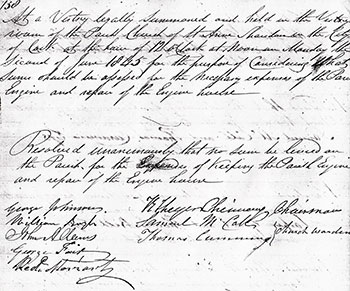 158
At a Vestry legally summoned and held in the Vestry
room of the Parish Church of St Anne Shandon in the City
of Cork at the hour of 12 o'Clock at Noon on Monday the
second of June 1845 for the purpose of Considering What
Sum should be assessed for the necessary expenses of the Parish
Engine and repair of the Engine house
Resolved unanimously that no sum be levied on
the Parish for the of Keeping the Parish Engine
and repair of the Engine house
George Johnson
Chairman
William
Samuel McCall
Thomas Cummins
Church wardens
George